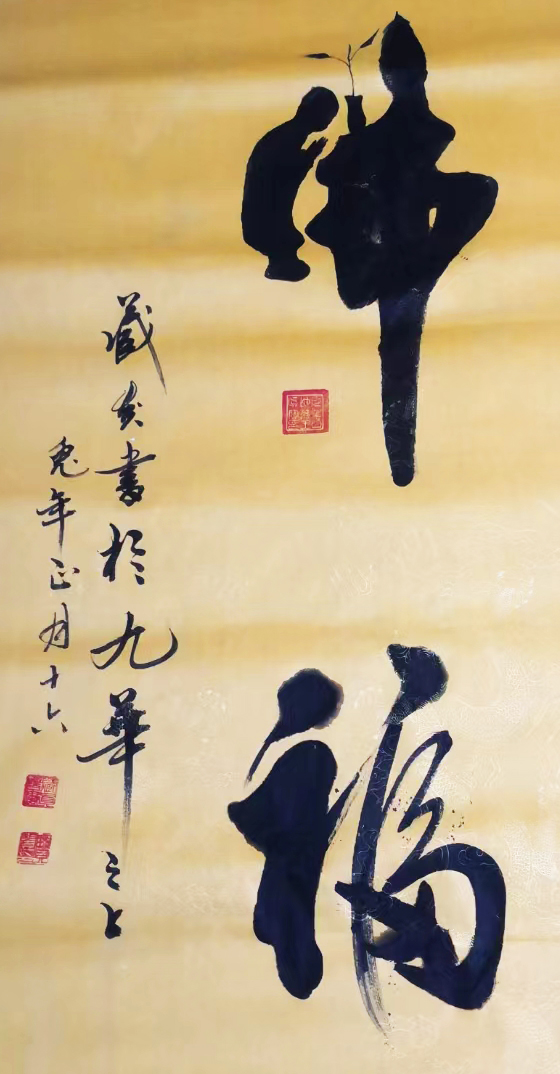 佛福
藏炎書於九華之上
兔年正月十六